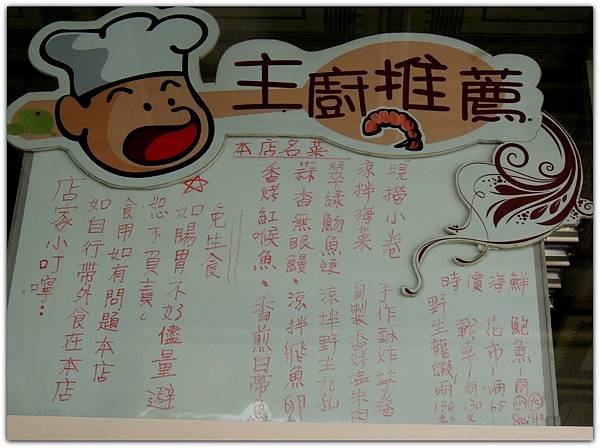 主廚推薦
本店名菜
現撈小卷 手作酥炸芋卷
涼拌海菜 自製香烤塩米肉
翠綠魩魚煙 涼拌野生九孔
蒜香無眼鰻・涼拌飛魚卵
香烤紅喉魚・香煎白帶魚
時價海鮮
鮑魚
花市 兩65
戰車 兩130元
野生龍蝦 兩130元
免生食
☆如腸胃不好儘量避
恕不負責
食用如有問題本店
如自行帶外食在本店
店家小叮嚀: